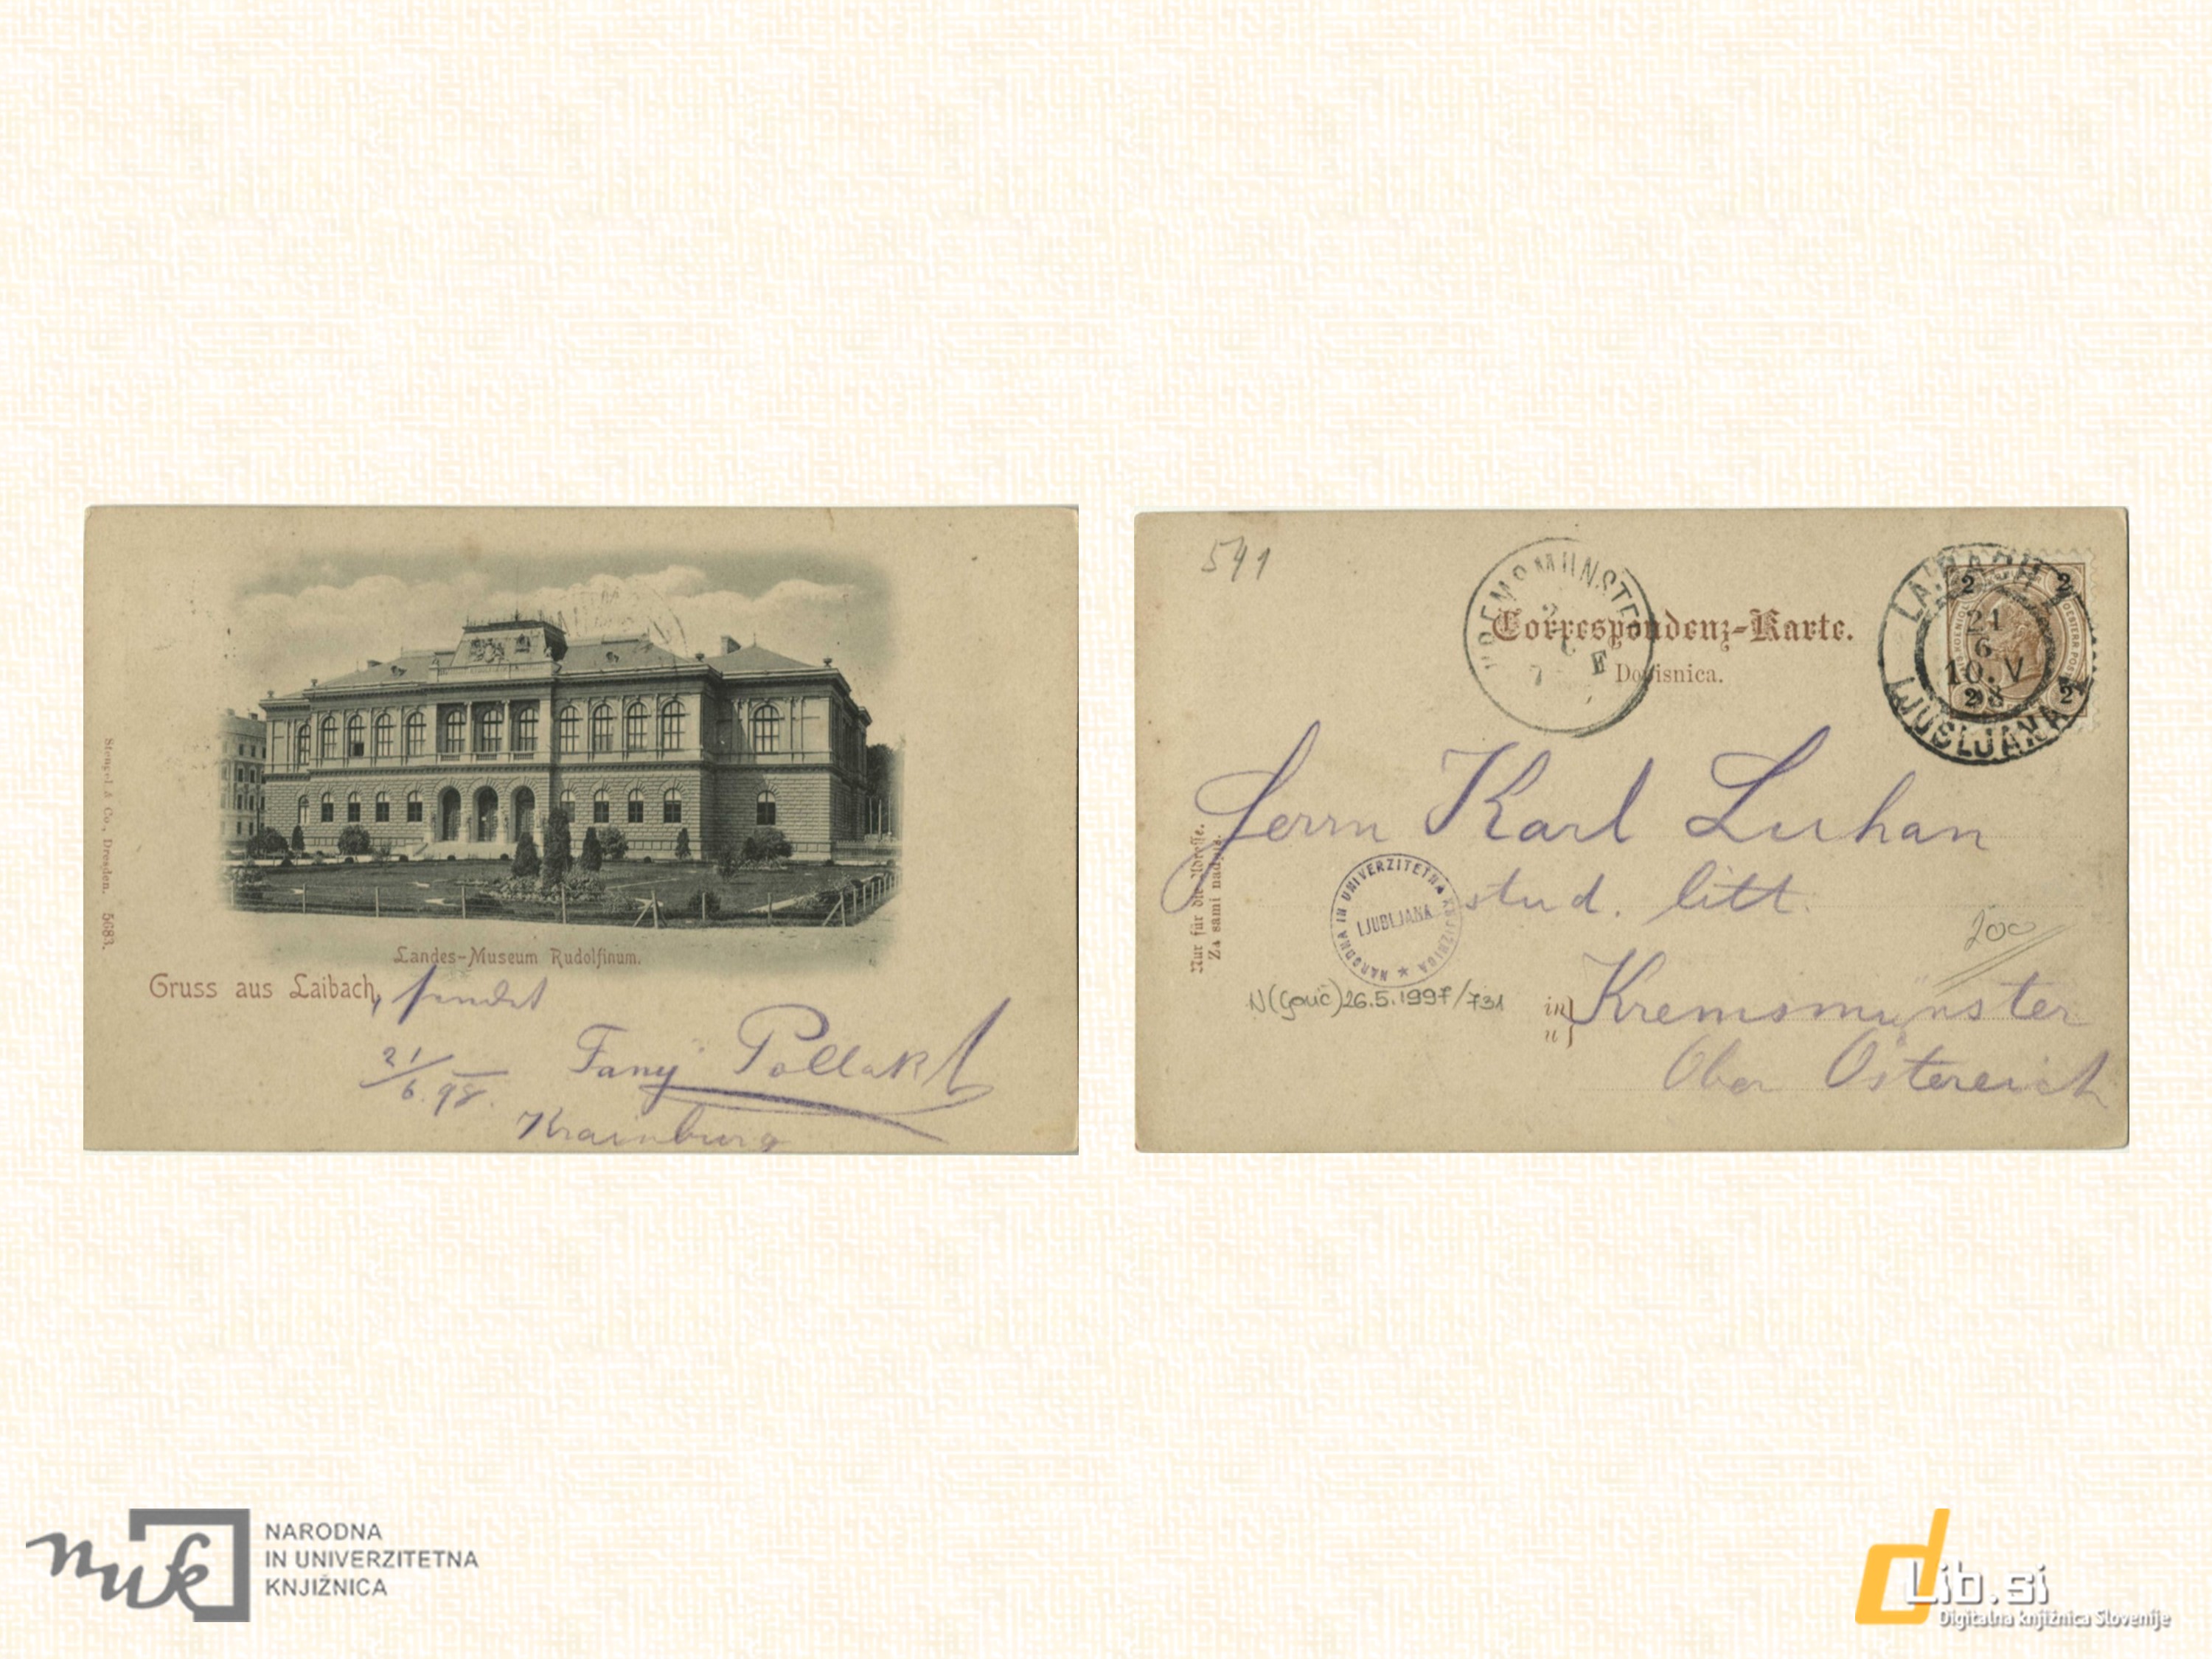 Stengel & Co., Dresden. 5683.
Landes-Museum Rudolfinum.
Gruss aus Laibach, sendet
21/6. 98.
Fany Pollak
Krainburg
541
KREMSMÜNSTER
Correspondenz-Karte.
Dopisnica.
LAIBACH
21
6
10. V
98
LJUBLJANA
2 2
2 2
Nur für die Adresse.
Za sami nadpis.
Herrn Karl Luhan
stud. litt.
NARODNA IN UNIVERZITETNA KNJIŽNICA
LJUBLJANA
200
N(Gouč)26.5.1997/731
in Kremsmünster
Ober Östereich
nuk
NARODNA
IN UNIVERZITETNA
KNJIŽNICA
dLib.si
Digitalna knjižnica Slovenije